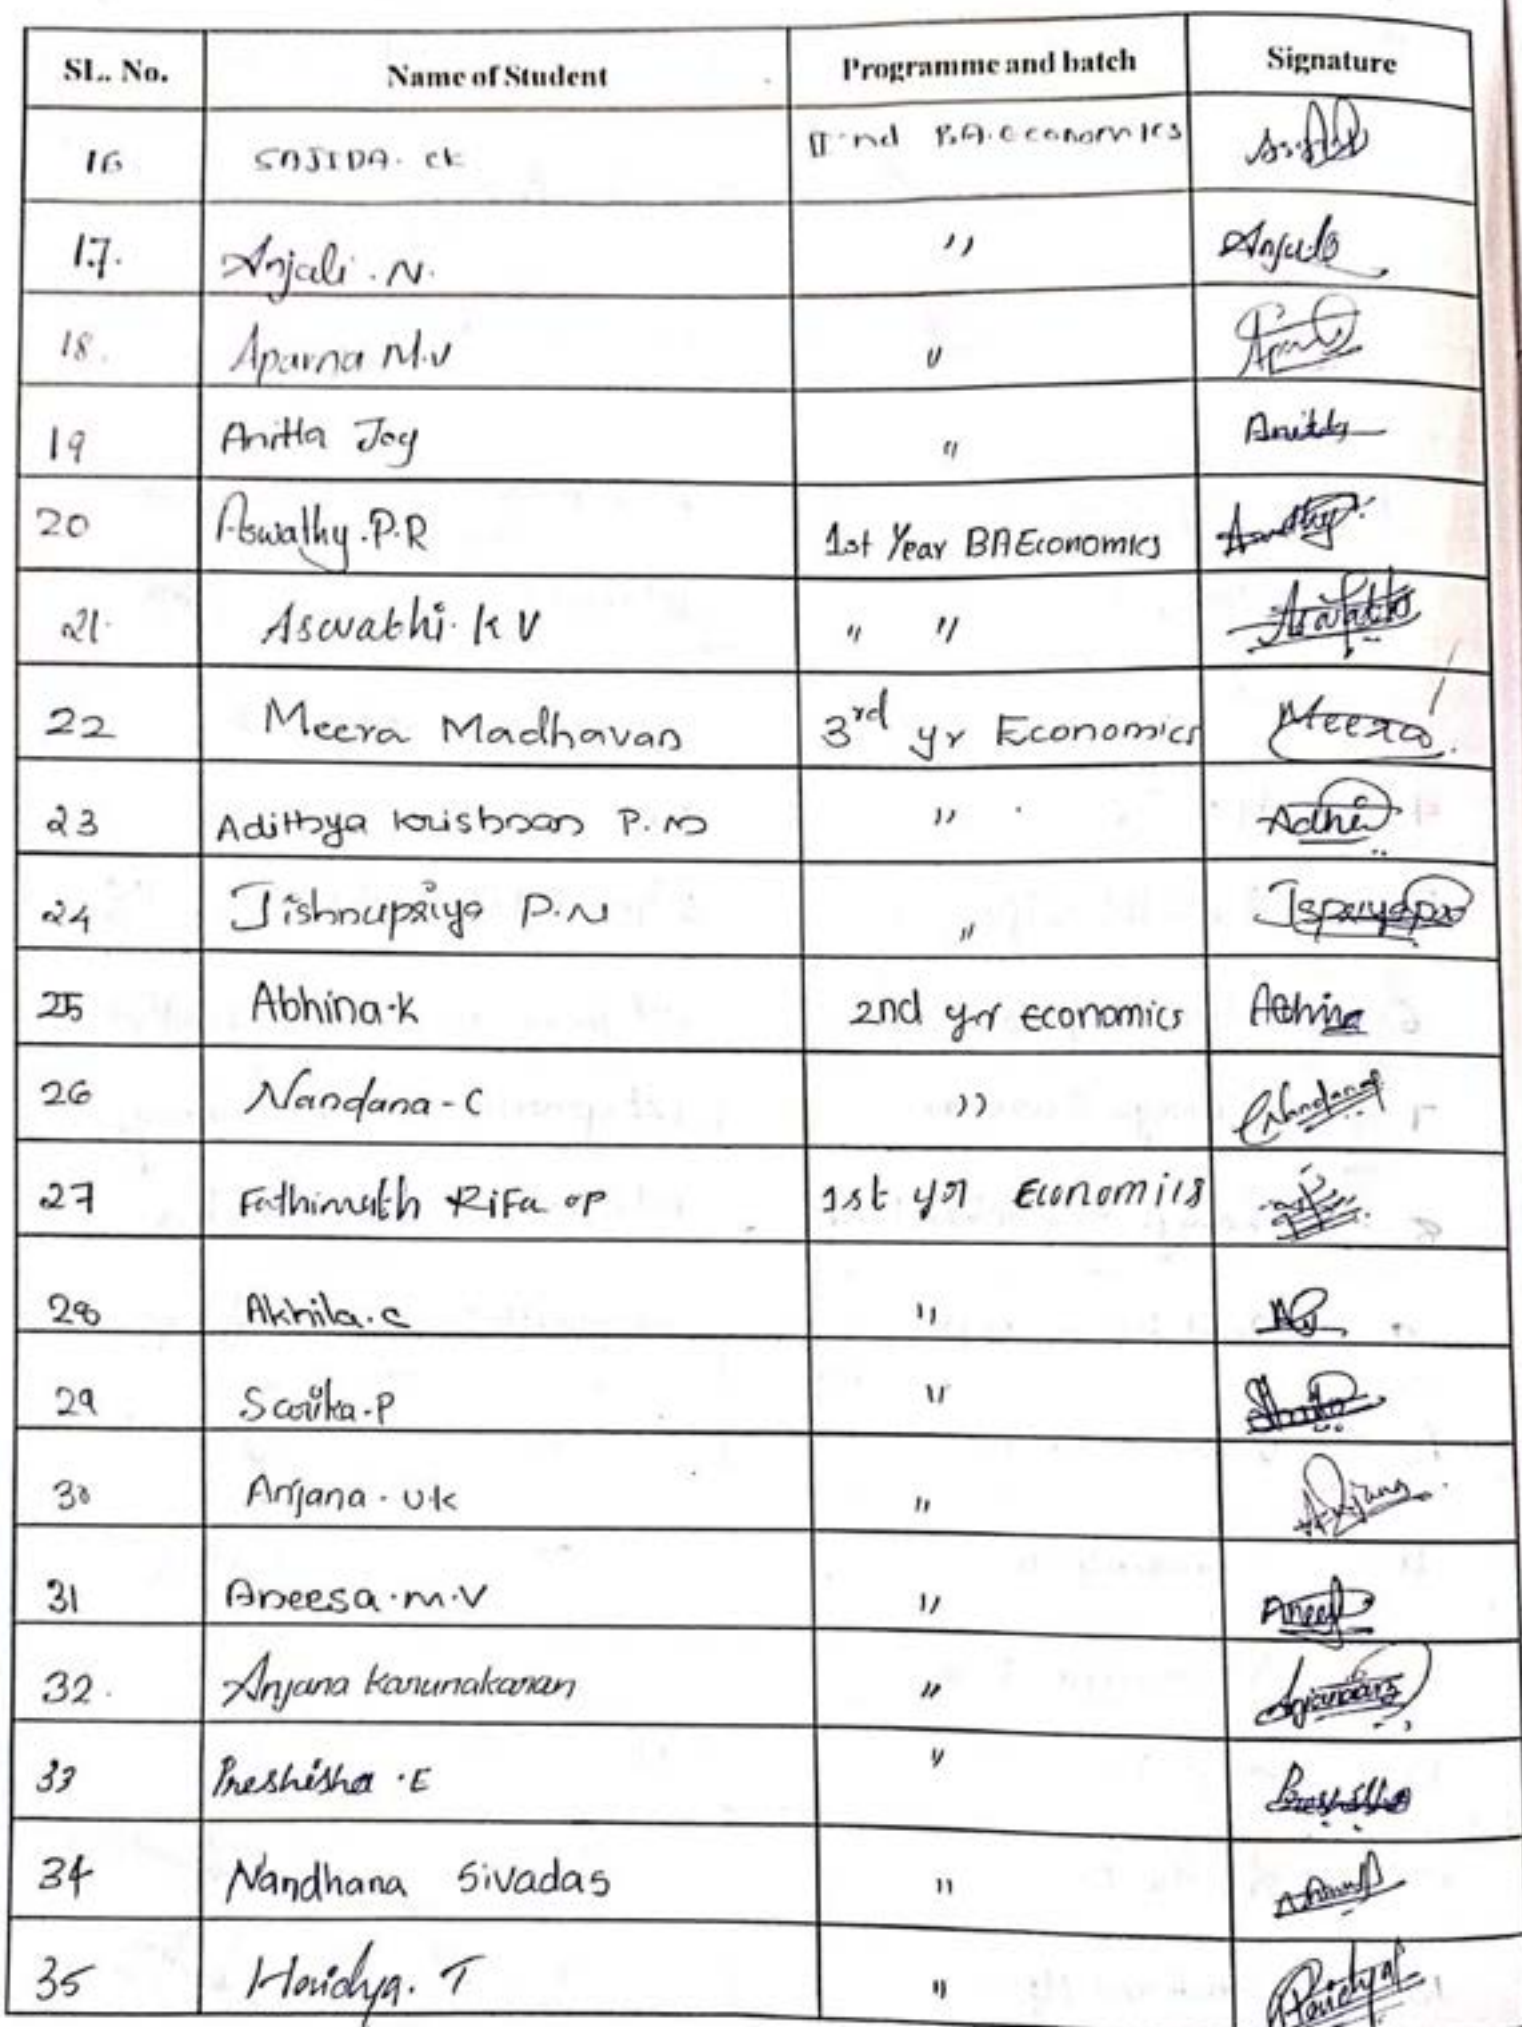 SL. No. Name of Student Programme and batch Signature
16 SAJIDA. ck II nd B.A. Economics
17. Anjali . N. ,, Anjali
18. Aparna M.V ,,
19 Anitta Joy ,, Anitta
20 Aswathy.P.R 1st Year BA Economics Aswathy
21. Aswathi. K V ,, ,, Aswathi
22 Meera Madhavan 3rd yr Economics Meera
23 Adithya krishnan P. M ,, Adhi
24 Jishnupriya P.N ,,
25 Abhina.k 2nd yr economics Abhina
26 Nandana - C ,, Nandana
27 Fathimath RiFa op 1st yr Economics
28 Akhila. c ,,
29 ,,
30 Anjana . U.K ,, Anjana
31 Aneesa . m . V ,,
32. Anjana Karunakaran ,, Anjana
33 Preshisha . E ,, Preshisha
34 Nandhana Sivadas ,,
35 Haridya. T ,,